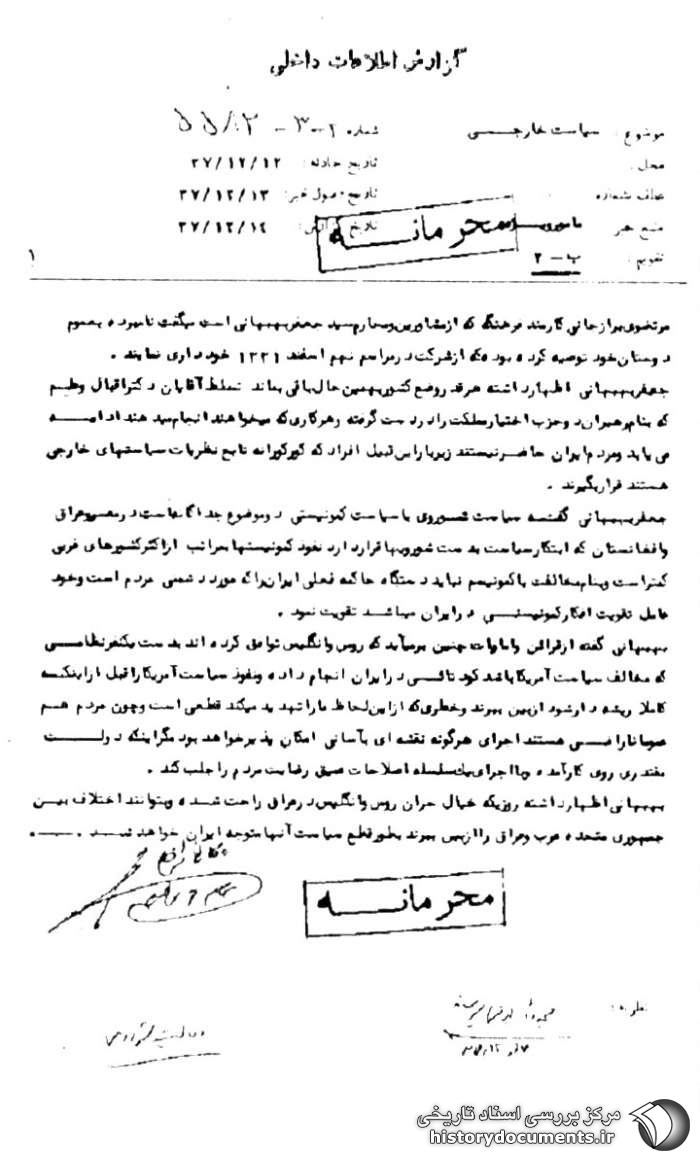 گزارش اطلاعات داخلی
موضوع : سیاست خارجــی
شماره
محل :
تاریخ حادثه : ۳۷/۱۲/۱۲
عطف شماره
تاریخ وصول خبر: ۳۷/۱۲/۱۳
منبع خبر
تاریخ گزارش: ۳۷/۱۲/۱٤
تقویم : ب - ۲
محرمانــه
۱
مرتضوی برازجانی کارمند فرهنگ که از مشاورین و محارم سید جعفر بهبهانی است میگفت نامبرده بعموم
دوستان خود توصیه کرده بود که از شرکت در مراسم نهم اسفند ۱۳۳۱ خودداری نمایند .
جعفر بهبهانی اظهار داشته هر قدر وضع کشور بهمین حال باقی بماند تسلط آقایان دکتر اقبال و علم
که بنام رهبران دو حزب اختیار مملکت را در دست گرفته و هر کاری که میخواهند انجام میدهند ادامـــه
می یابد و مردم ایران حاضر نیستند زیر بار این قبیل افراد که کورکورانه تابع نظریات سیاستهای خارجی
هستند قرار بگیرند .
جعفر بهبهانی گفتــه سیاست شــوروی با سیاست کمونیستی دو موضوع جداگانه است در مصر و عراق
و افغانستان که ابتکار سیاست بدست شورویها قرار دارد نفوذ کمونیستها بمراتب از اکثر کشورهای غربی
کمتر است و بنام مخالفت با کمونیسم نباید دستگاه حاکمه فعلی ایران را که مورد دشمنی مردم است و خود
عامل تقویت افکار کمونیستــی در ایران میباشد تقویت نمود .
بهبهانی گفته از قرائن و امارات چنین برمیآید که روس و انگلیس توافق کرده اند بدست یکنفر نظامــی
که مخالف سیاست آمریکا باشد کودتائــی در ایران انجام داده و نفوذ سیاست آمریکا را قبل از اینکــه
کاملا ریشه دار شود از بین ببرند و خطری که از این لحاظ ما را تهدید میکند قطعی است و چون مردم هــم
عموما ناراضــی هستند اجرای هرگونه نقشه ای بآسانی امکان پذیر خواهد بود مگر اینکه دولـــت
مقتدری روی کار آمده و با اجرای یک سلسله اصلاحات عمیق رضایت مردم را جلب کند .
بهبهانی اظهار داشته روزیکه خیال سران روس و انگلیس در عراق راحت شــده و بتوانند اختلاف بیــن
جمهوری متحده عرب و عراق را از بین ببرند بطور قطع سیاست آنها متوجه ایران خواهد شــد .
محرمانــه
نظریه :
مرکز بررسی اسناد تاریخی
historydocuments.ir